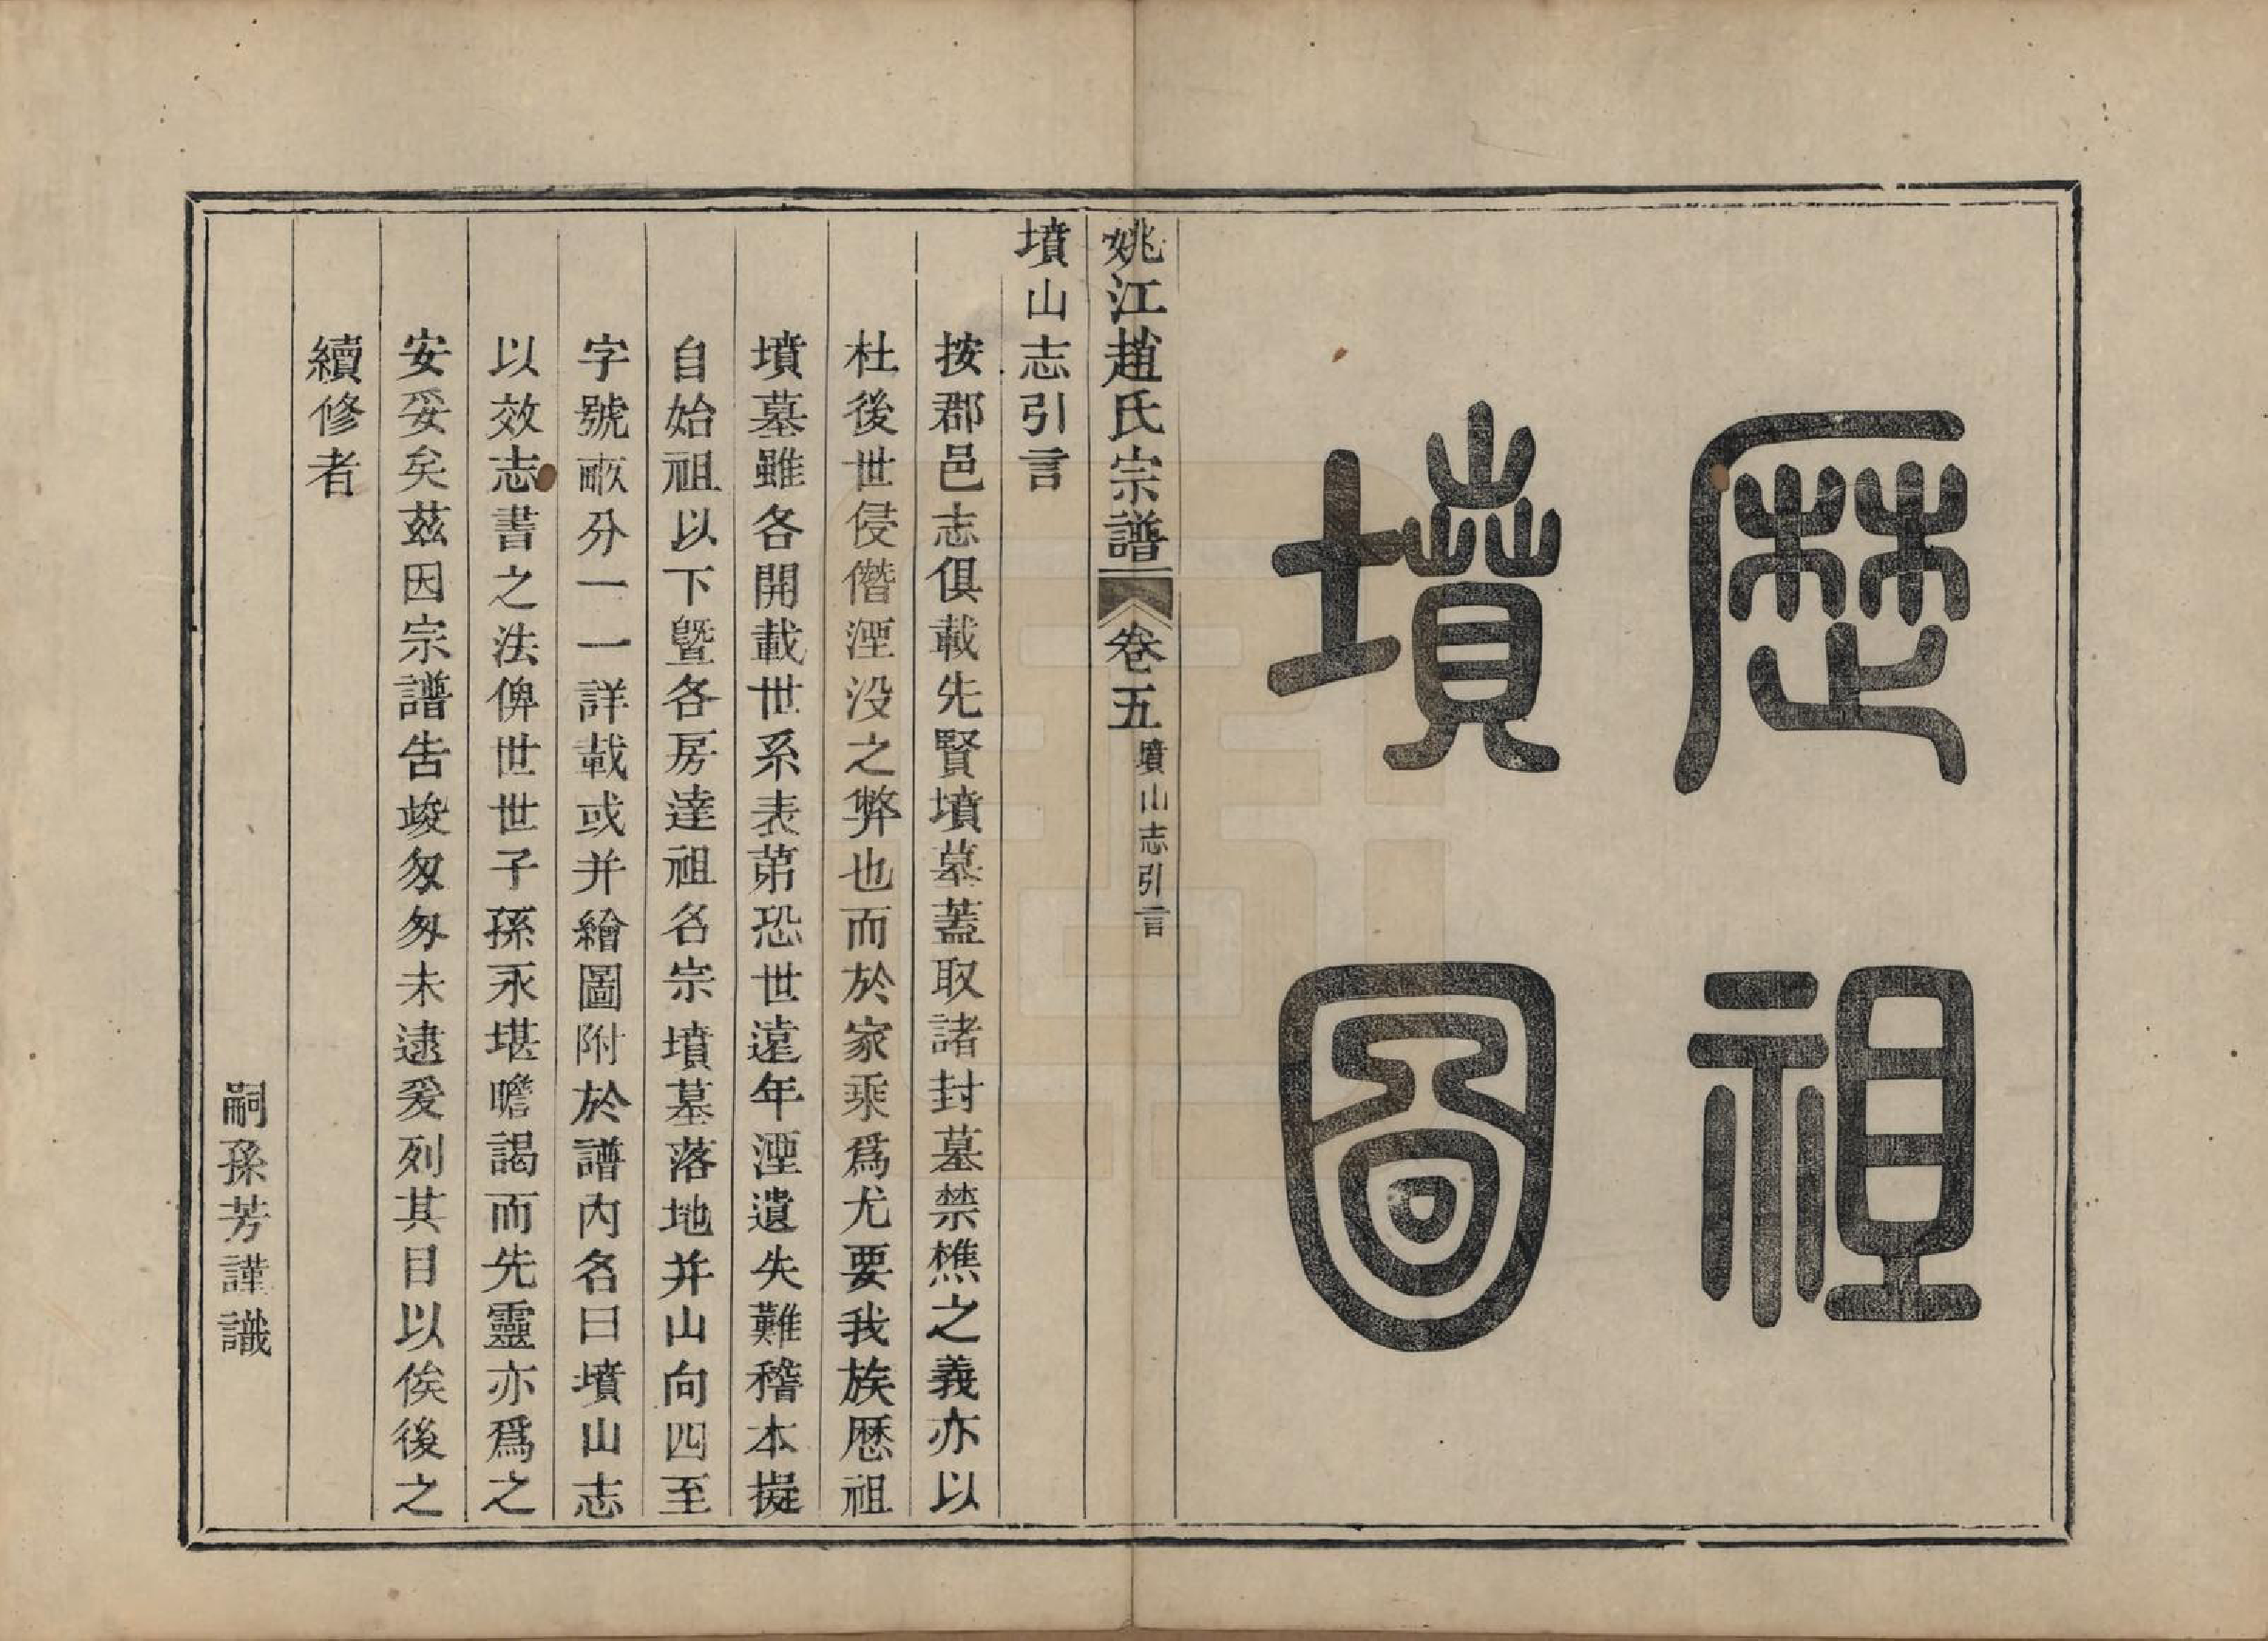 歷祖
墳圖
姚江趙氏宗譜 卷五 墳山志引言
墳山志引言
按郡邑志俱載先賢墳墓蓋取諸封墓禁樵之義亦以
杜後世侵僭湮没之弊也而於家乘爲尤要我族歷祖
墳墓雖各開載世系表第恐世遠年湮遺失難稽本擬
自始祖以下曁各房逹祖名宗墳墓落地并山向四至
字號畝分一一詳載或并繪圖附於譜内名曰墳山志
以效志書之法俾世世子孫永堪瞻謁而先靈亦爲之
安妥矣茲因宗譜告竣匆匆未逮爰列其目以俟後之
續修者
嗣孫芳謹識